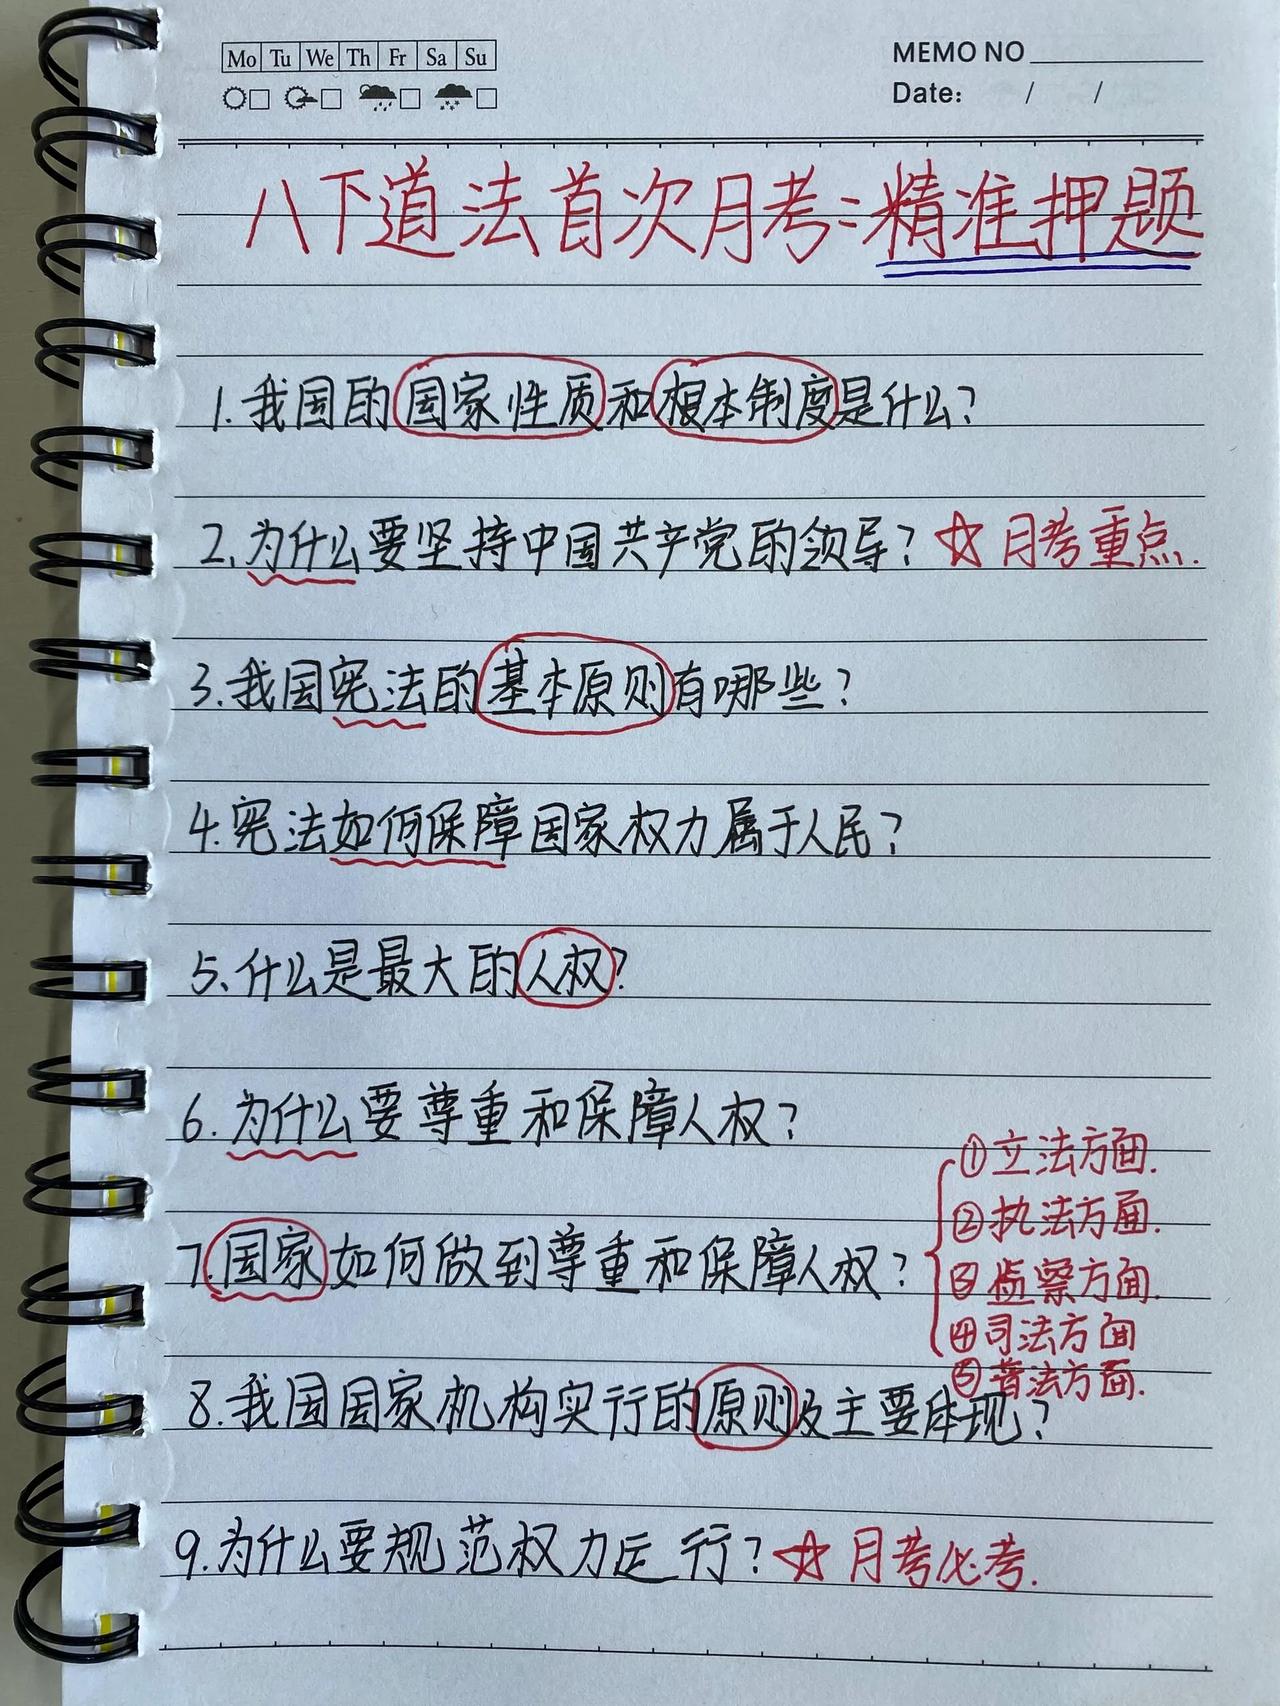 Mo Tu We Th Fr Sa Su
MEMO NO
Date: / /
八下道法首次月考:精准押题
1.我国的国家性质和根本制度是什么?
2.为什么要坚持中国共产党的领导?☆月考重点.
3.我国宪法的基本原则有哪些?
4.宪法如何保障国家权力属于人民?
5、什么是最大的人权?
6.为什么要尊重和保障人权?
7.国家如何做到尊重和保障人权?
①立法方面.
②执法方面.
③监察方面.
④司法方面
⑤普法方面.
8.我国国家机构实行的原则及主要体现?
9.为什么要规范权力运行?☆月考必考.